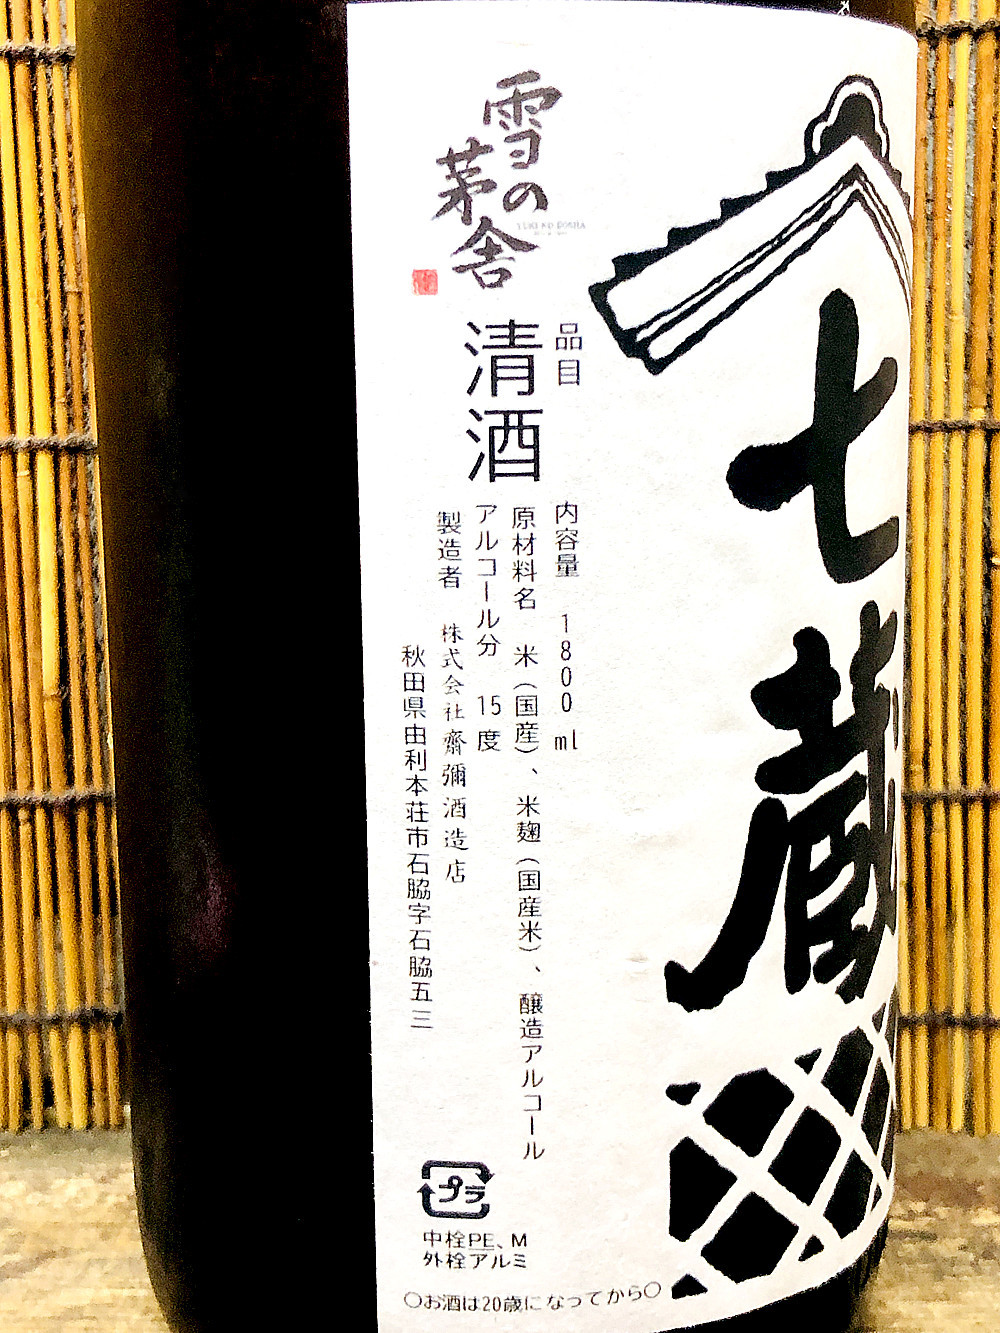 七蔵
雪の
茅舎
YUKI NO BOSHA
品目
清酒
内容量 1800ml
原材料名 米(国産)、米麹(国産米)、醸造アルコール
アルコール分 15度
製造者 株式会社齋彌酒造店
秋田県由利本荘市石脇字石脇五三
プラ
中栓PE、M
外栓アルミ
○お酒は20歳になってから○